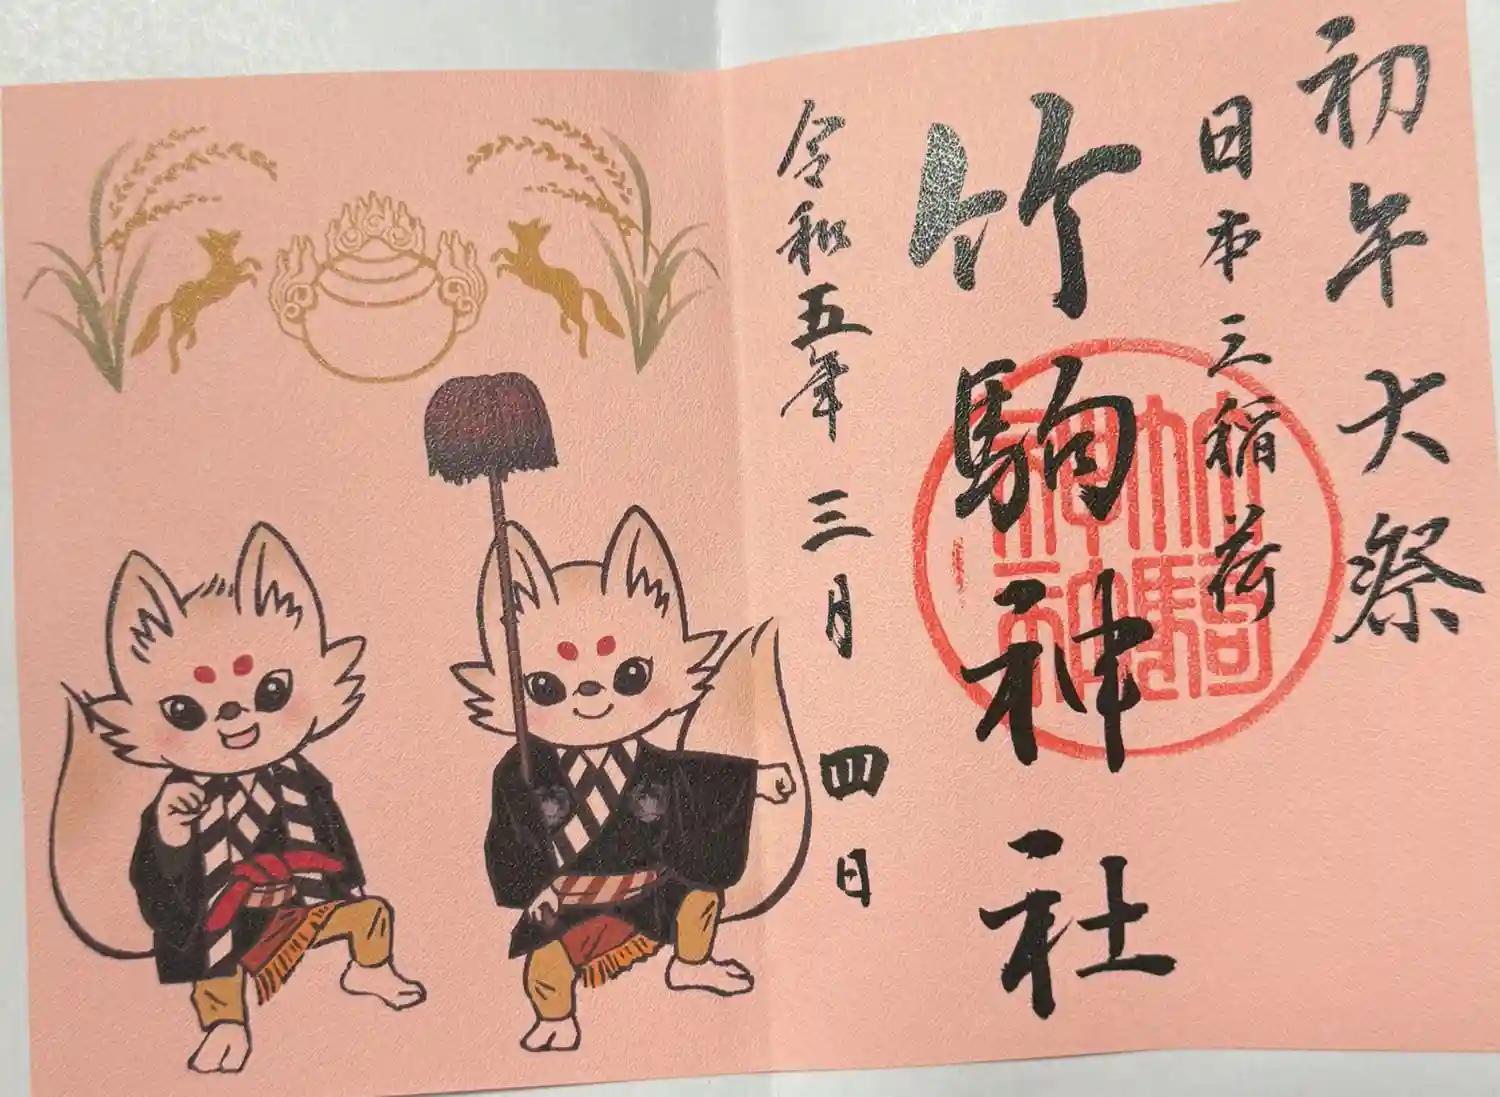 初午大祭
日本三稲荷
竹駒神社
竹駒神社
令和五年 三月 四日